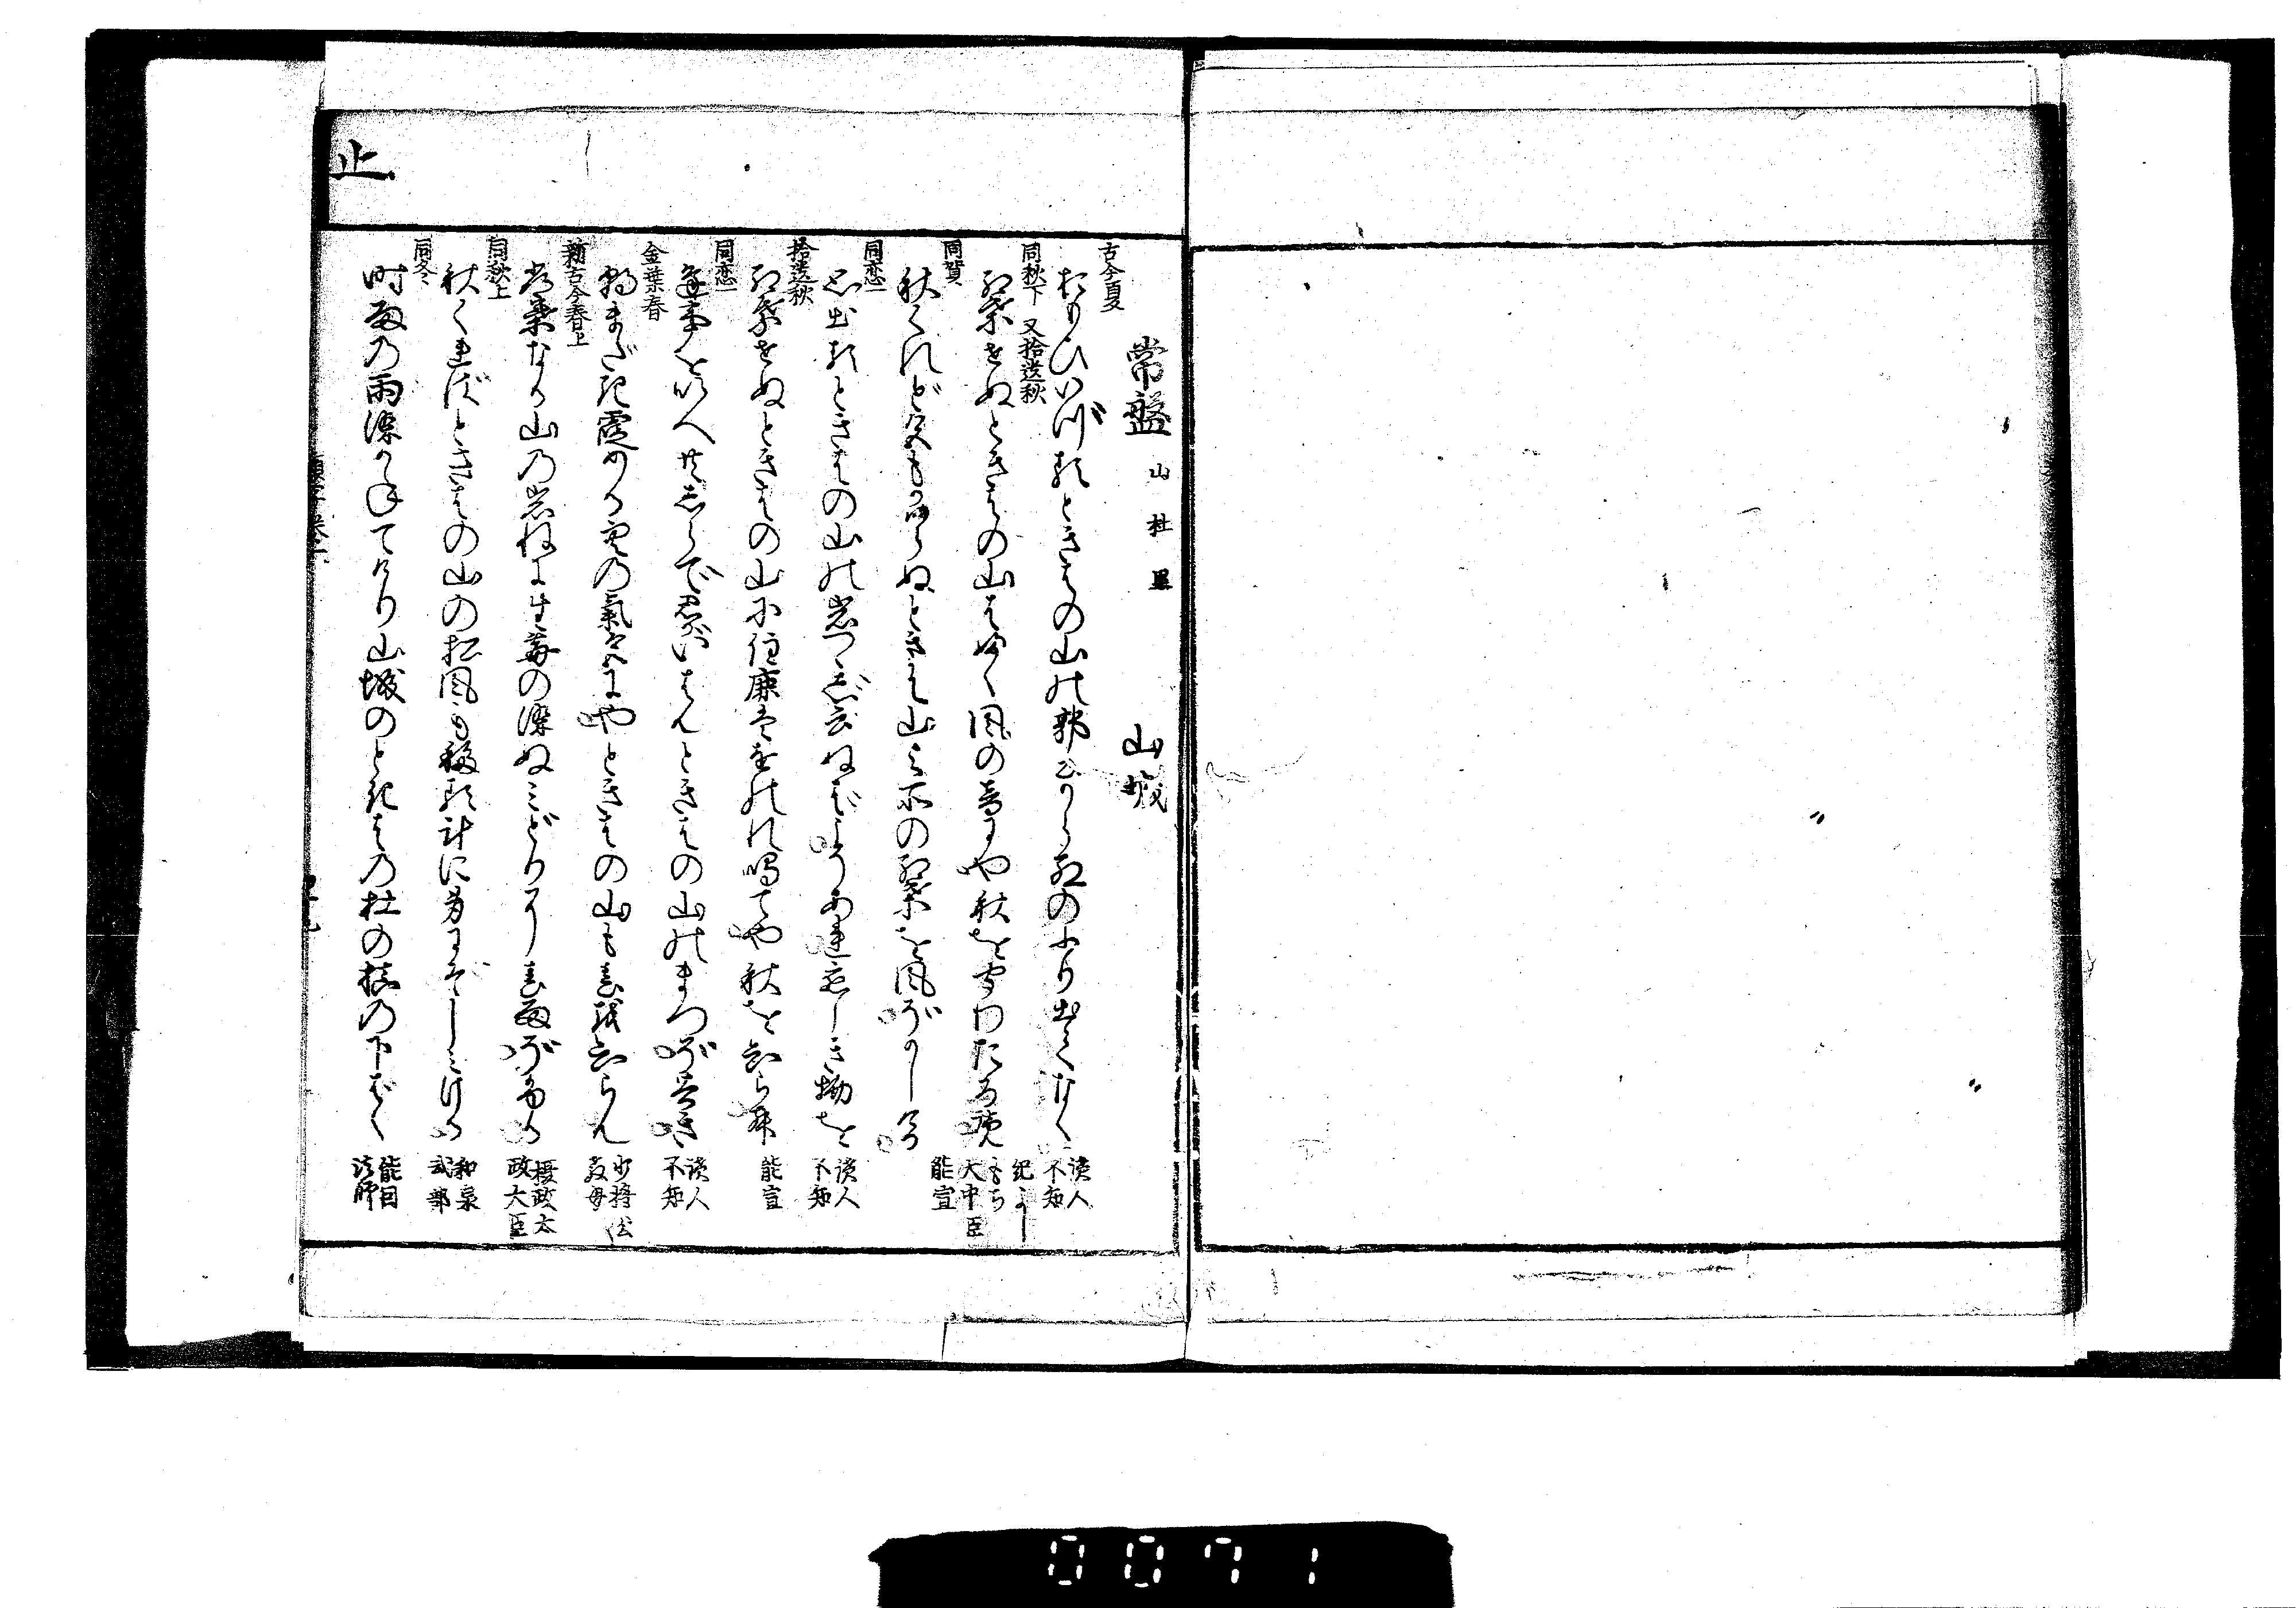 止
常盤 山 杜 里 山城
古今夏
おもひいづるときはの山の郭公から紅のふり出てなく 読人不知
同秋下 又拾遺秋
紅葉せぬときはの山はふく風の音にや秋を聞わたる覧 紀よしもち
同賀
秋くれど色もかはらぬときは山よその紅葉を風ぞかしける 大中臣能宣
同恋一
思出るときはの山の岩つゝじいはねばこそあれ恋しき物を 読人不知
拾遺秋
紅葉せぬときはの山に住鹿はをのれ鳴てや秋をしらん 能宣
同恋一
逢事を
ときはの山のまつぞ
読人不知
金葉春
霞める空の気色にやときはの山も春をしらん 少将公教母
新古今春上
常葉なる山の岩ねにむす苔の染ぬみどりに春雨ぞふる 摂政太政大臣
同秋上
秋くればときはの山の松風も移る計に身にぞしみける 和泉式部
同冬
時雨の雨染かねてけり山城のときはの杜の槙の下ばゝ 能因法師
0071